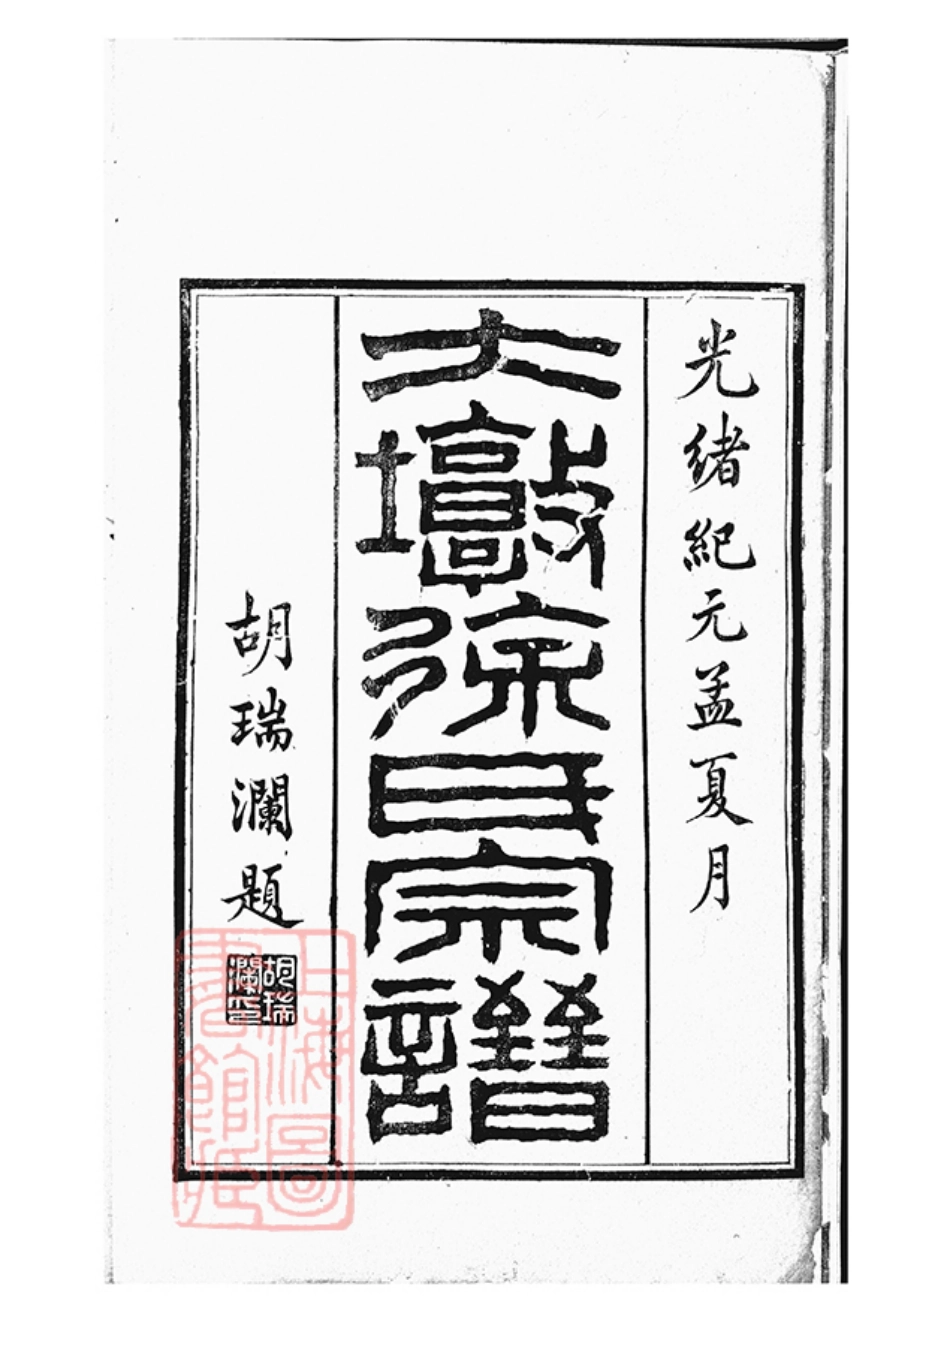 光緒紀元孟夏月
大墩徐氏宗譜
胡瑞瀾題
胡瑞
瀾印
上海圖
書館藏